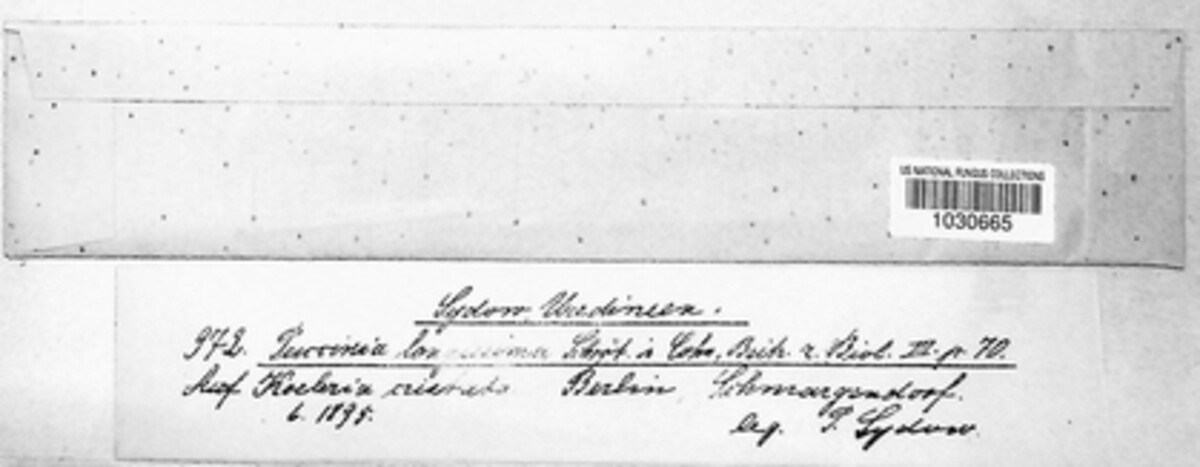 US NATIONAL FUNGUS COLLECTIONS
1030665
Sydow, Uredineen.
972. Puccinia longissima Schröt. in Cohn, Beitr. z. Biol. III. p. 70.
Auf Koeleria cristata Berlin, Schmargendorf.
6. 1895.
leg. P. Sydow.